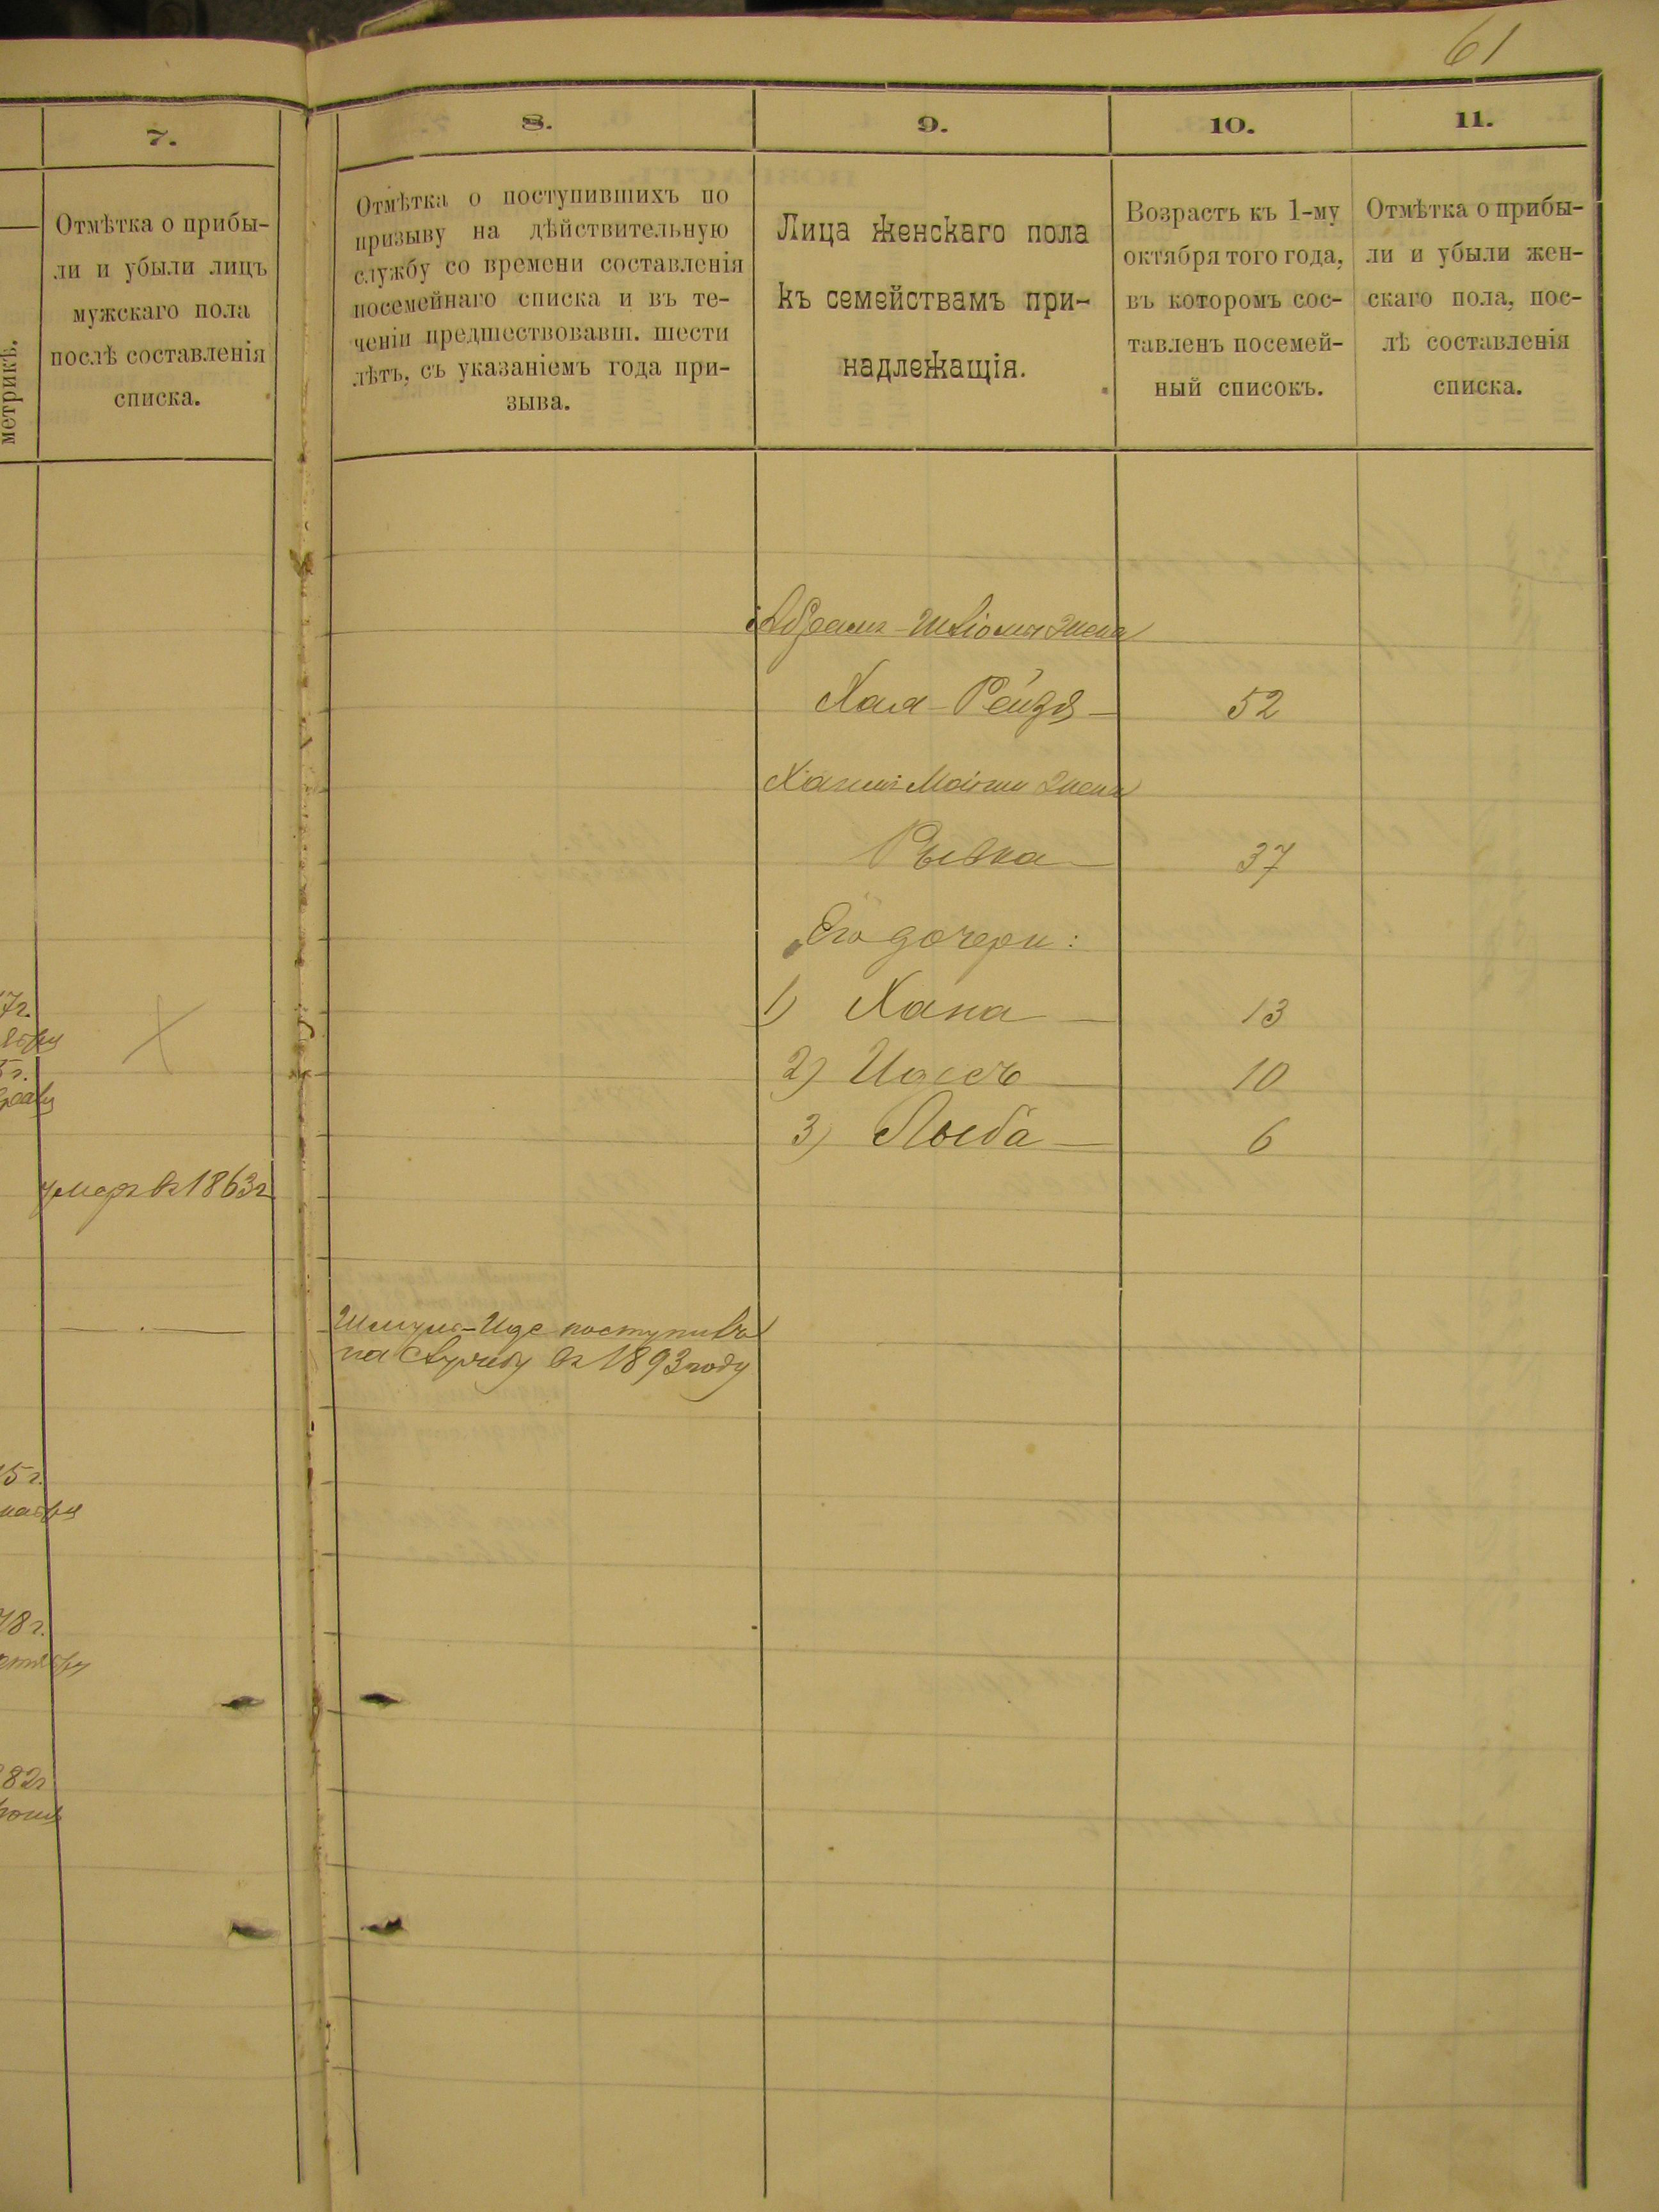 61
7.
8.
9.
10.
11.
метрикѣ.
Отмѣтка о прибы-
ли и убыли лицъ
мужскаго пола
послѣ составленія
списка.
Отмѣтка о поступившихъ по
призыву на дѣйствительную
службу со времени составленія
посемейнаго списка и въ те-
ченіи предшествовавш. шести
лѣтъ, съ указаніемъ года при-
зыва.
Лица женскаго пола
къ семействамъ при-
надлежащія.
Возрастъ къ 1-му
октября того года,
въ которомъ сос-
тавленъ посемей-
ный списокъ.
Отмѣтка о прибы-
ли и убыли жен-
скаго пола, пос-
лѣ составленія
списка.
Абрамъ-Шліома жена
Хая-Рейзя 52
жена
Рывка 37
Его дочери:
1) Хана 13
7г.
5г.
2) Идесъ 10
3) Лыба 6
умеръ въ 1863г
Шмуль-Иде поступилъ
на службу въ 1893 году
5г.
78г.
82г